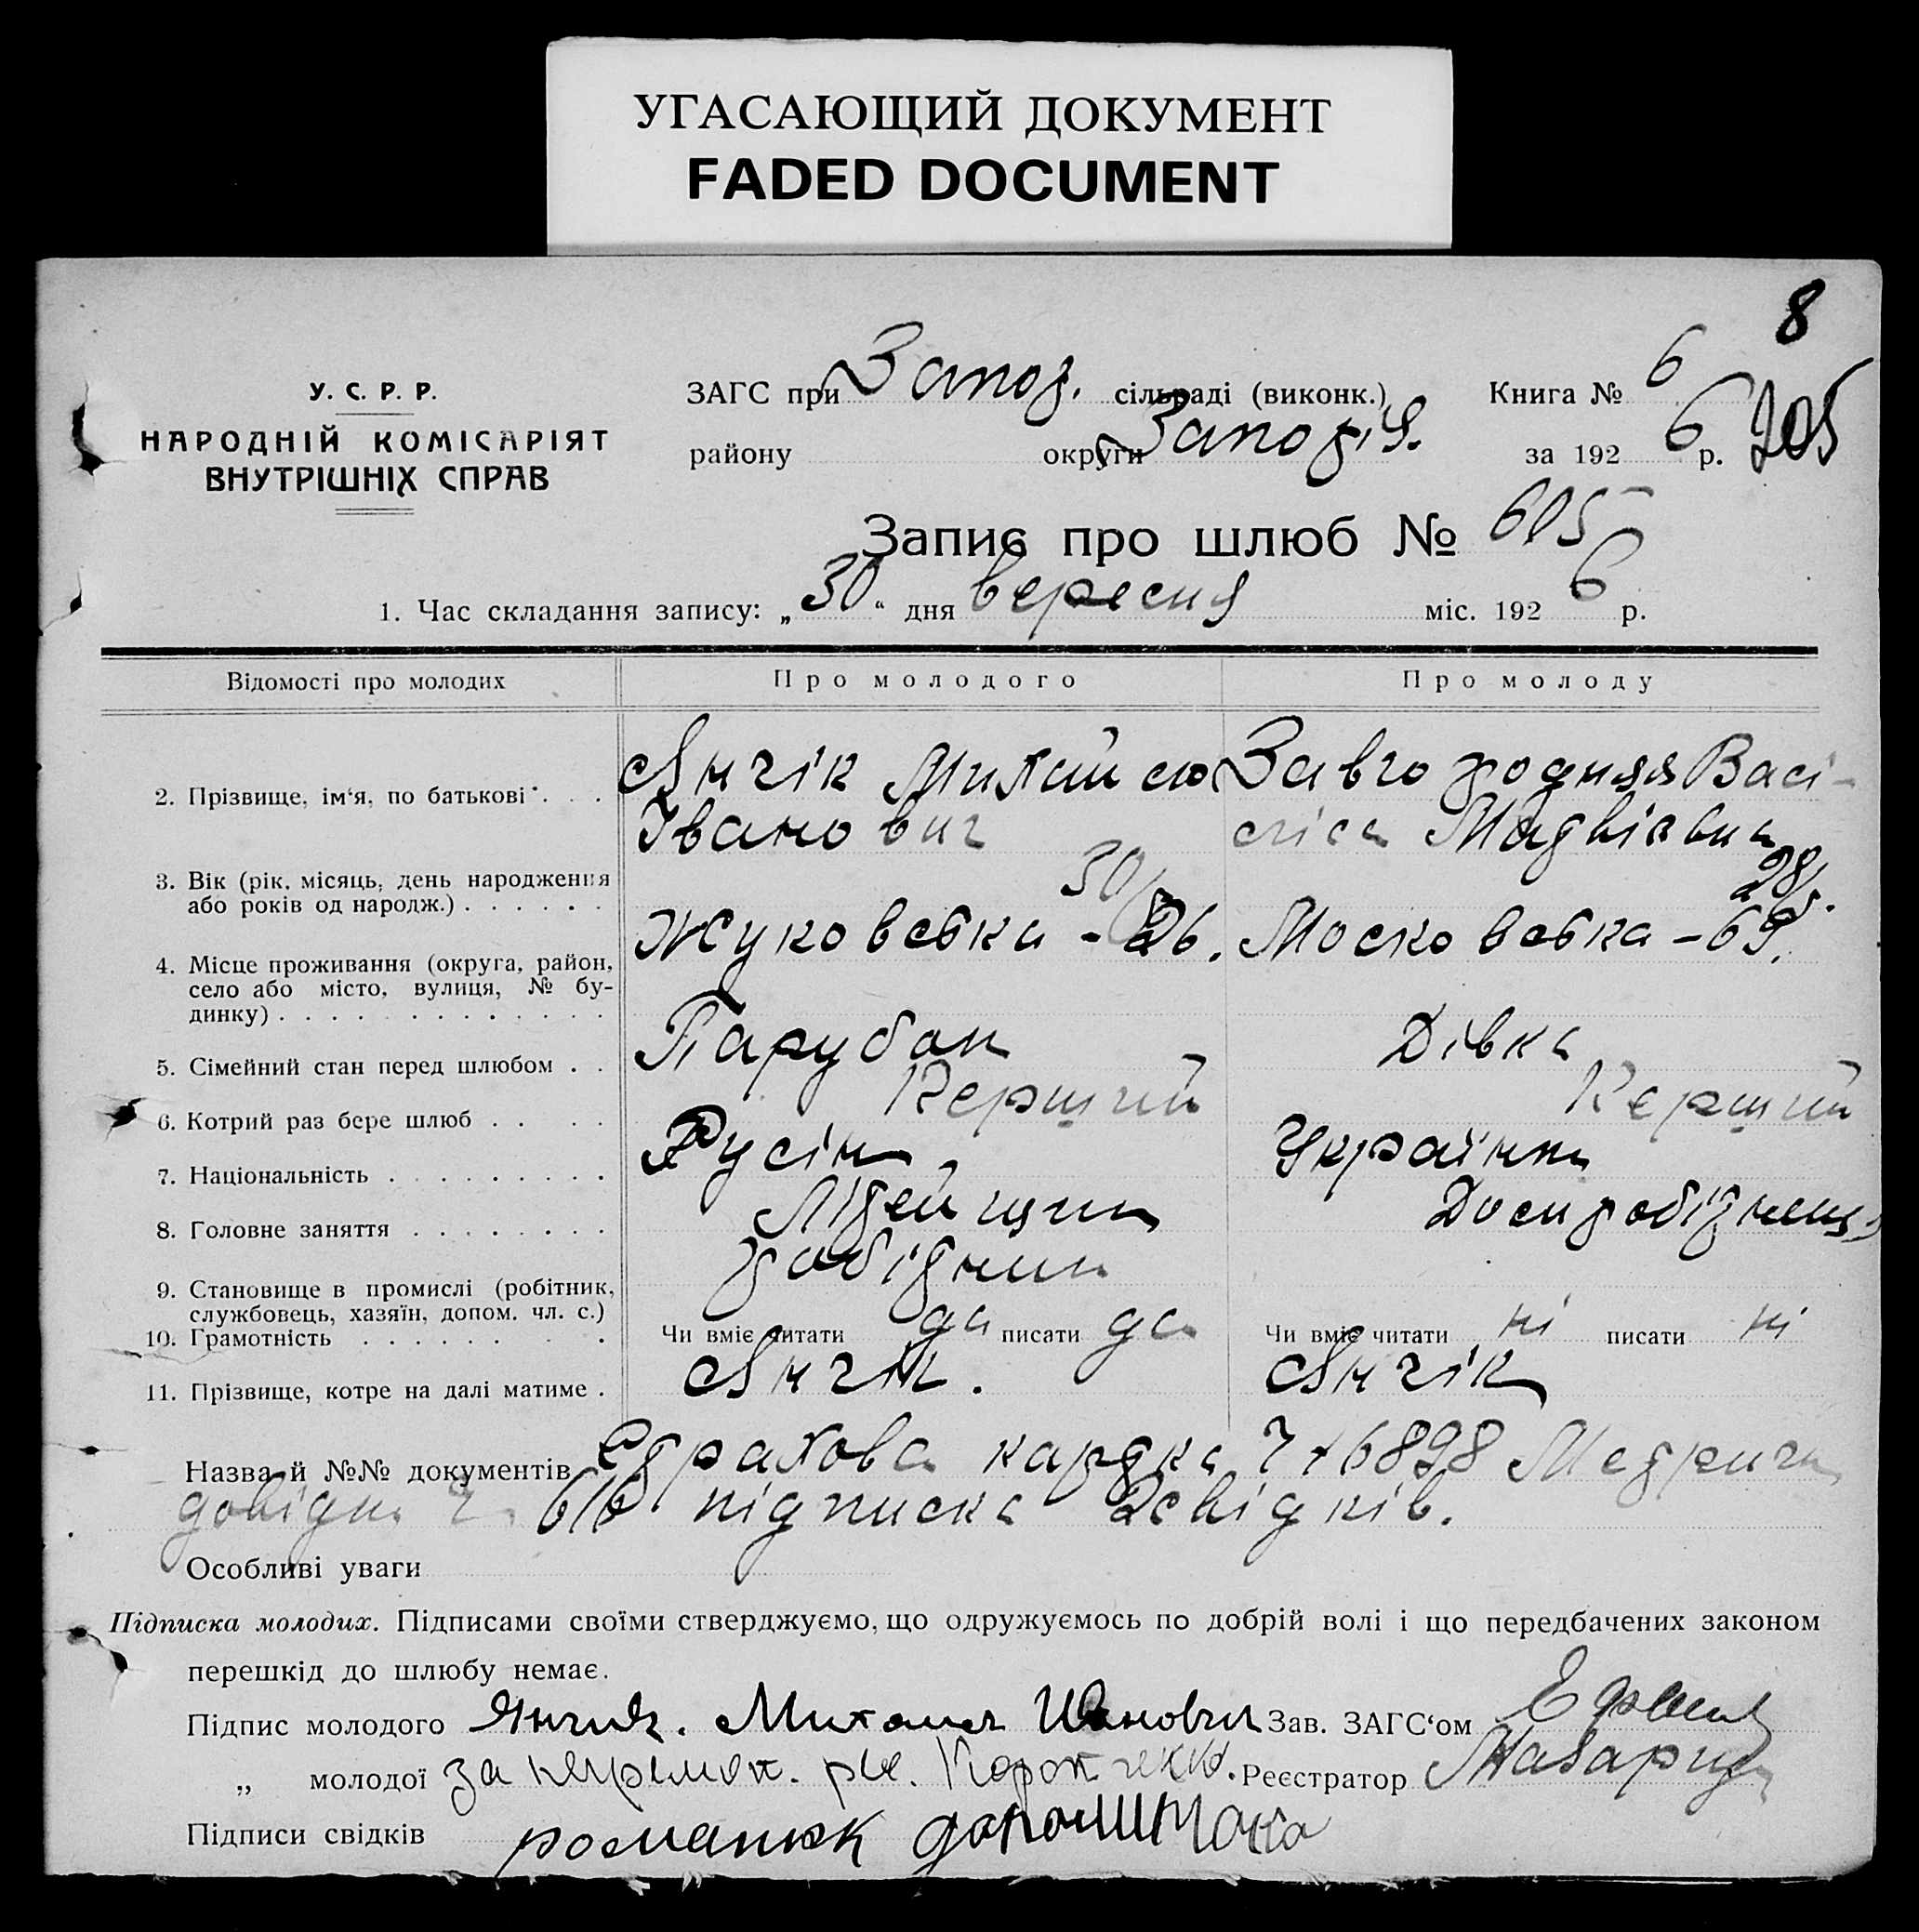 УГАСАЮЩИЙ ДОКУМЕНТ
FADED DOCUMENT
8
У. С. Р. Р.
НАРОДНІЙ КОМІСАРІЯТ
ВНУТРІШНІХ СПРАВ
ЗАГС при Запоз. сільраді (виконк.) Книга № 6
району округи за 192 6 р. 205
Запис про шлюб № 605
1. Час складання запису: „30“ дня вересня міс. 192 6 р.
Відомості про молодих Про молодого Про молоду
2. Прізвище, ім‘я, по батькові . . . Янчік Михайло Завгородняя Васі-
Іванович ліса Матвіївна
3. Вік (рік, місяць, день народження 30/ 28/
або років од народж.) . . . . . .
Жуковська - 26. Московська - 69.
4. Місце проживання (округа, район,
село або місто, вулиця, № бу-
динку) . . . . . . . . . . . . .
5. Сімейний стан перед шлюбом . . Парубок Дівка
6. Котрий раз бере шлюб . . . . Перший Перший
7. Національність . . . . . . . . . Русін. Українка
8. Головне заняття . . . . . . . . Літейщик
робітник
9. Становище в промислі (робітник,
службовець, хазяїн, допом. чл. с.)
10. Грамотність . . . . . . . . Чи вміє читати да писати да Чи вміє читати ні писати ні
11. Прізвище, котре на далі матиме . Янчік. Янчік
Назва й №№ документів Страхова картка 746898 Медрична
довідка 616 підписка 2 свідків.
Особливі уваги
Підписка молодих. Підписами своїми стверджуємо, що одружуємось по добрій волі і що передбачених законом
перешкід до шлюбу немає.
Підпис молодого Янчик. Михаил Иванович Зав. ЗАГС‘ом
„ молодої за неграмот. рос. Реєстратор
Підписи свідків романюк